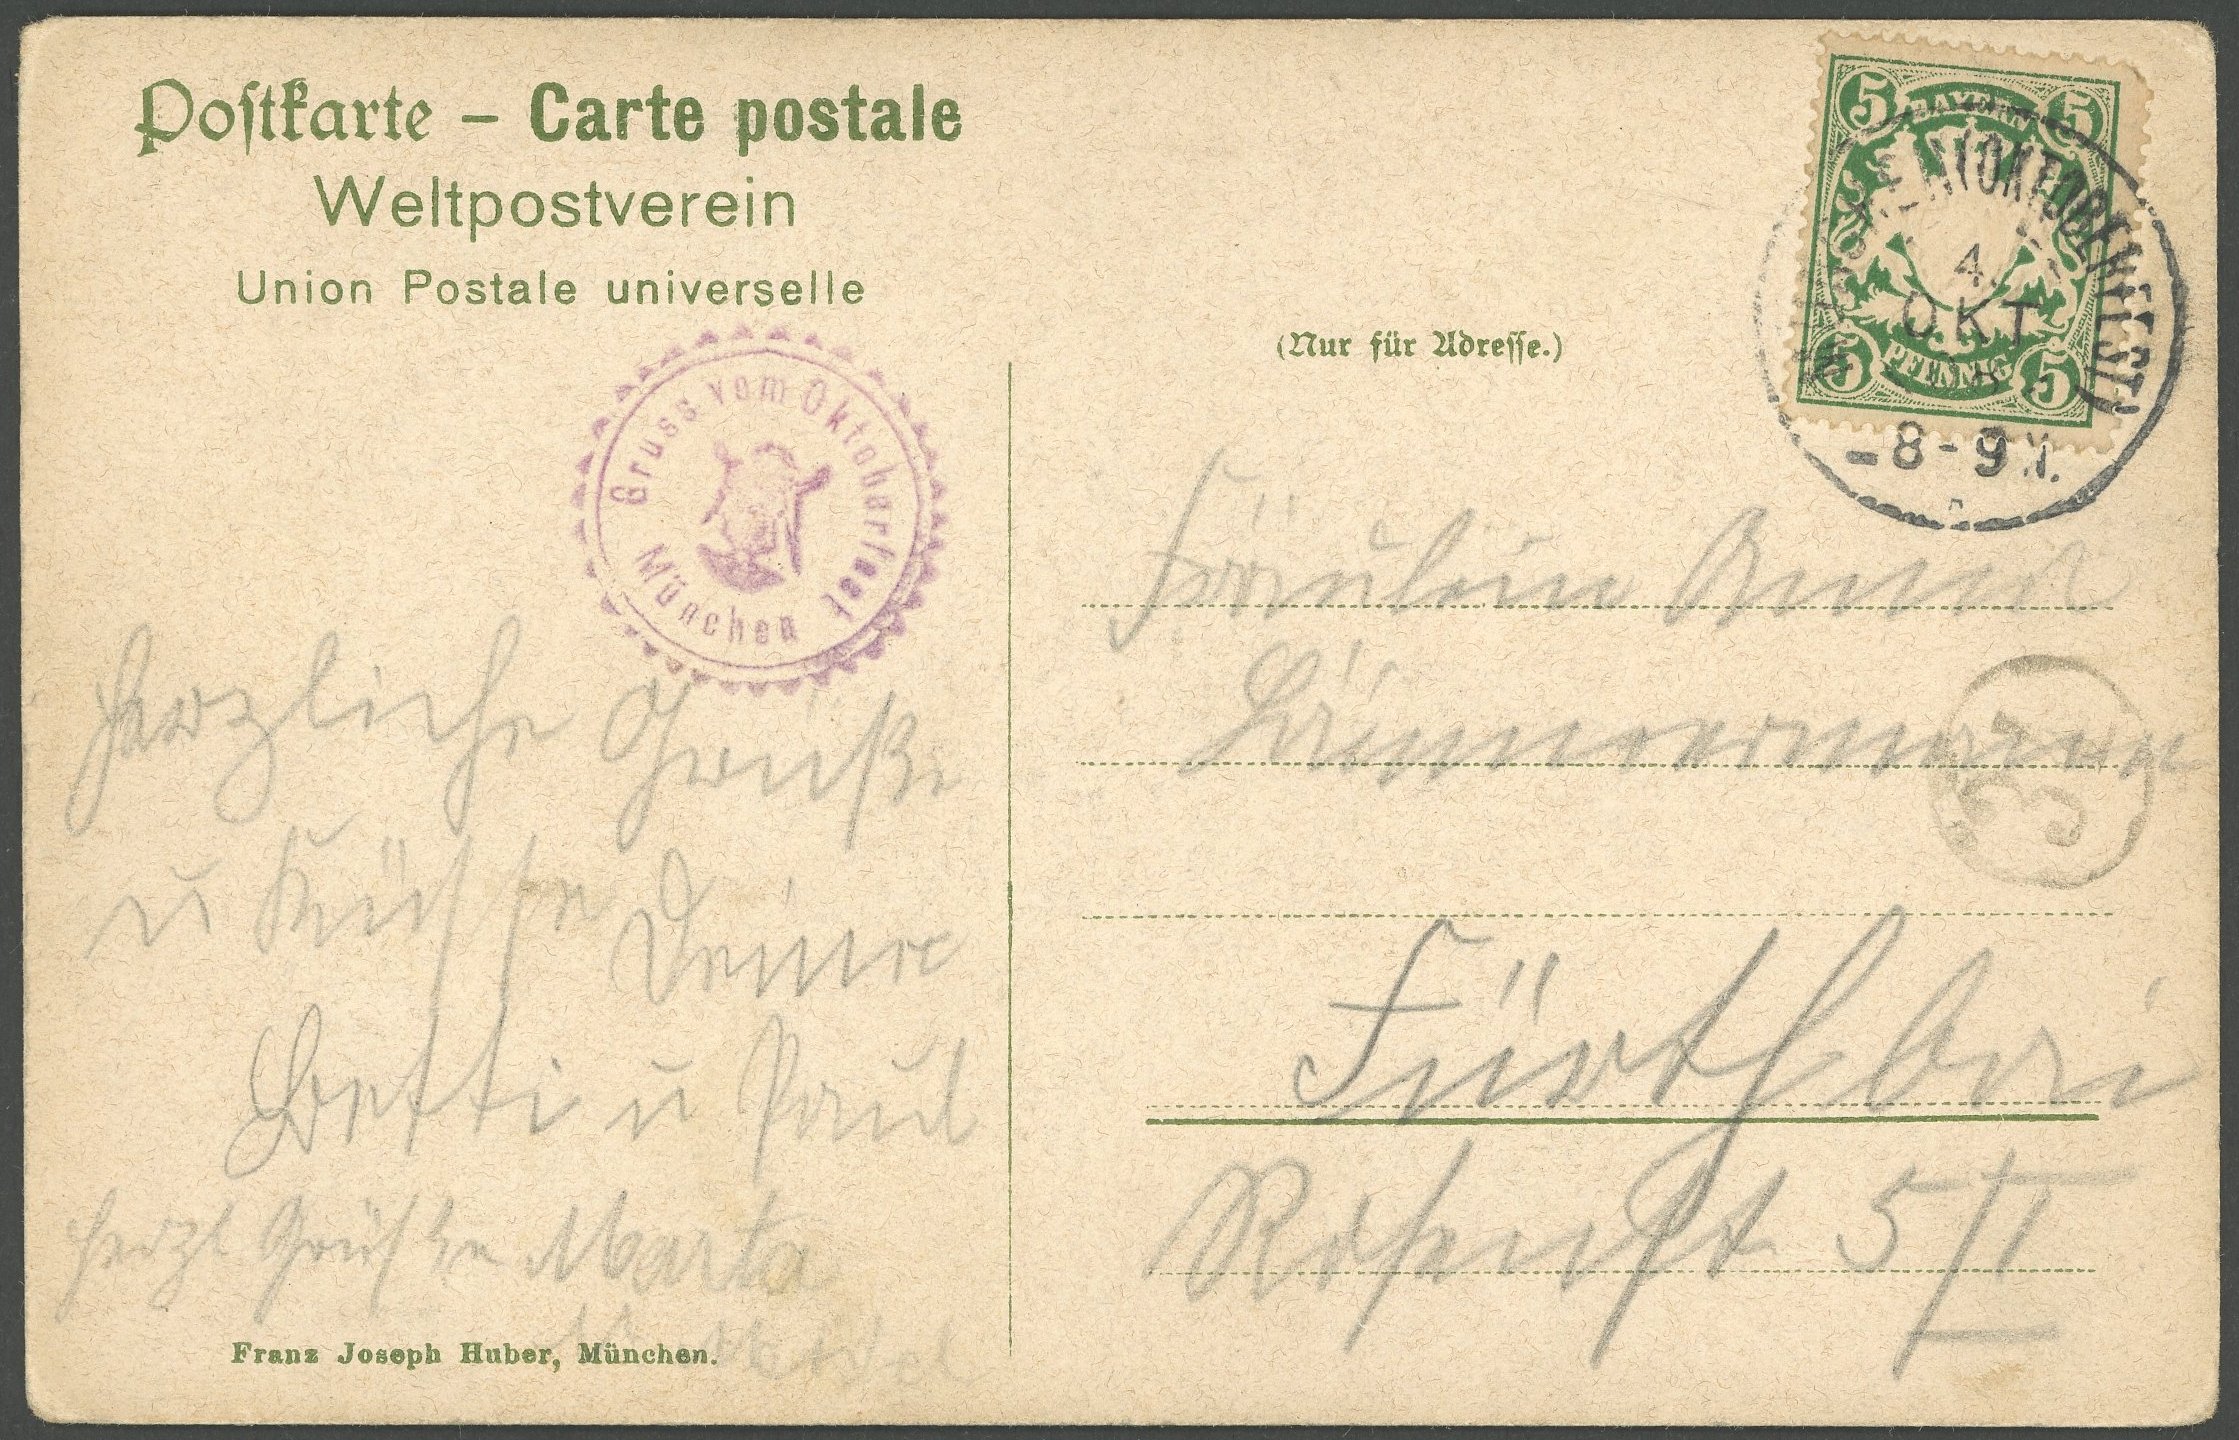 Postkarte – Carte postale
Weltpostverein
Union Postale universelle
Gruss vom Oktoberfest
München
5 BAYERN 5
5 PFENNIG 5
MÜNCHEN (OKTOBERFEST)
4.
OKT
8-9 N.
(Nur für Adresse.)
Herzliche Grüße
u Küsse Deine
Betti u Paul
herzl Grüße Marta
Fräulein Anna
3
Fürth Bai
Rosenst 5/II
Franz Joseph Huber, München.